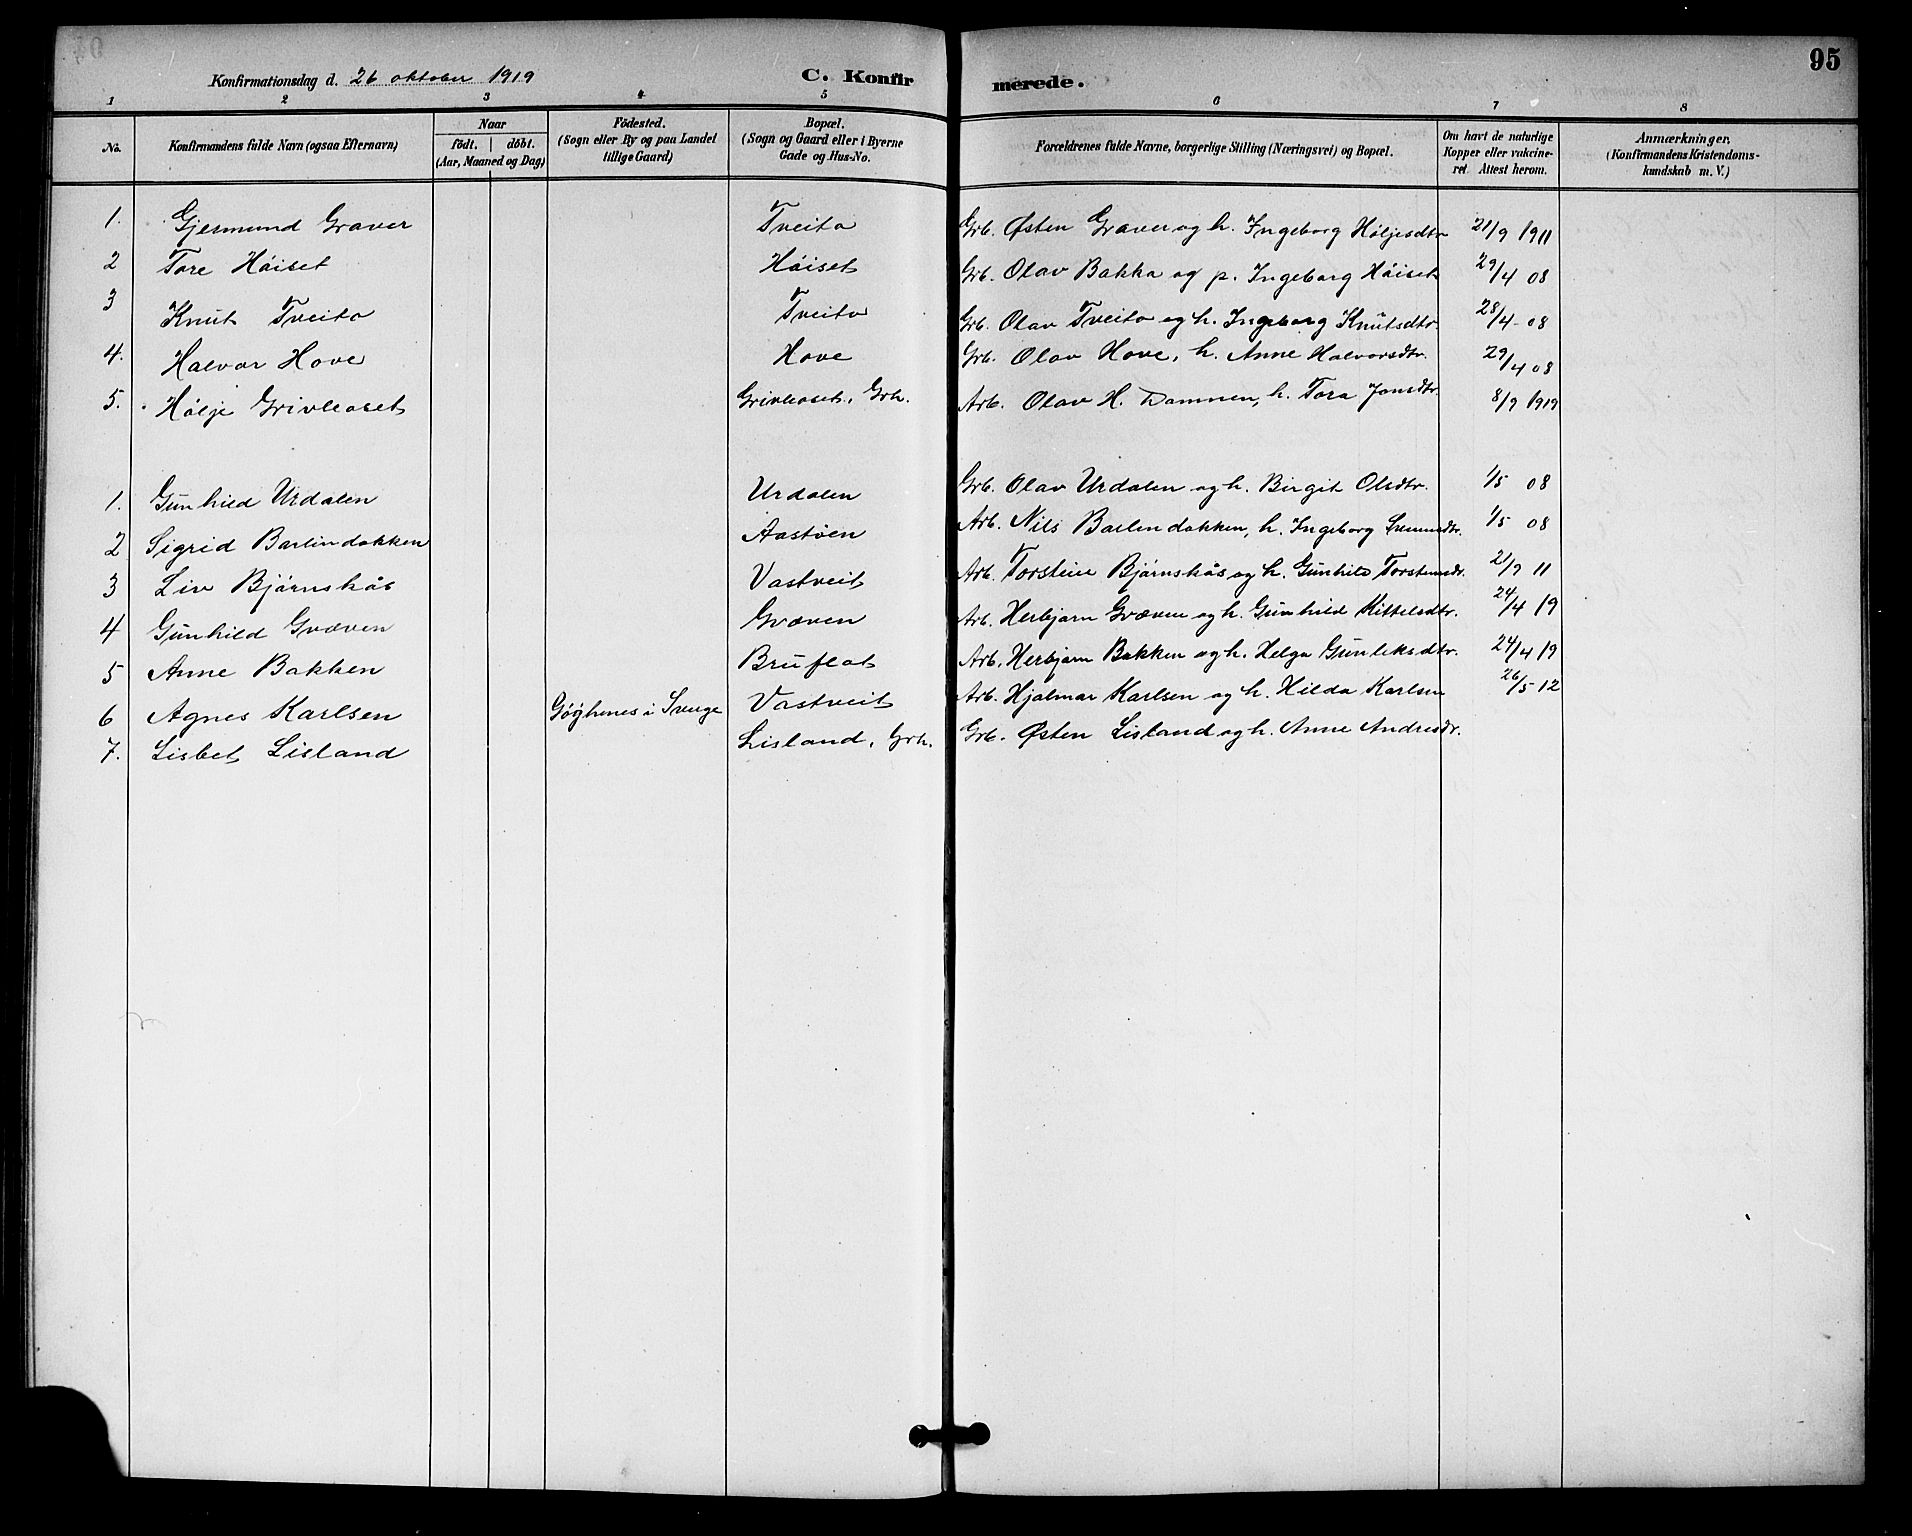 Konfirmationsdag d. 26 oktober 1919 C. Konfirmerede. 95
1 2 3 4 5 6 7 8
No. Konfirmandens fulde Navn (ogsaa Efternavn) Naar födt. döbt. (Aar, Maaned og Dag) Födested. (Sogn eller By og paa Landet tillige Gaard) Bopæl. (Sogn og Gaard eller i Byerne Gade og Hus-No. Forældrenes fulde Navne, borgerlige Stilling (Næringsvei) og Bopæl. Om havt de naturlige Kopper eller vakcineret Attest herom. Anmærkninger. (Konfirmandens Kristendomskundskab m. V.)
1. Gjermund Graver Tveito Grb. Østen Graver og h. Ingeborg Høljesdtr 21/9 1911
2 Tore Höiset Höiset Grb. Olav Bakka og p. Ingeborg Höiset 29/4 08
3 Knut Tveito Tveito Grb. Olav Tveito og h. Ingeborg Knutsdtr. 28/4 08
4. Halvor Hove Hove Grb. Olav Hove, h. Anne Halvorsdtr. 29/4 08
5. Hölje Grivleaset Grivleaset, Grh. Arb. Olav H. Dammen, h. Tora Jonsdtr. 8/9 1919
1. Gunhild Urdalen Urdalen Grb. Olav Urdalen og h. Birgit Olsdtr. 1/5 08
2 Sigrid Barlindokken Aastöen Arb. Nils Barlindokken, h. Ingeborg 1/5 08
3 Liv Bjørnskås Vastveit Arb. Torstein Bjørnskås og h. Gunhild Torsteinsdr. 21/9 11
4 Gunhild Græven Græven Arb. Herbjørn Græven og h. Gunhild Kittelsdtr. 24/4 19
5 Anne Bakken Bruflat Arb. Herbjørn Bakken og h. Helga Gunleksdtr. 24/4 19
6 Agnes Karlsen i Sverge Vastveit Arb. Hjalmar Karlsen og h. Hilda Karlsen 26/5 12
7. Lisbet Lisland Lisland, Grh. Grb. Østen Lisland og h. Anne Andresdr.